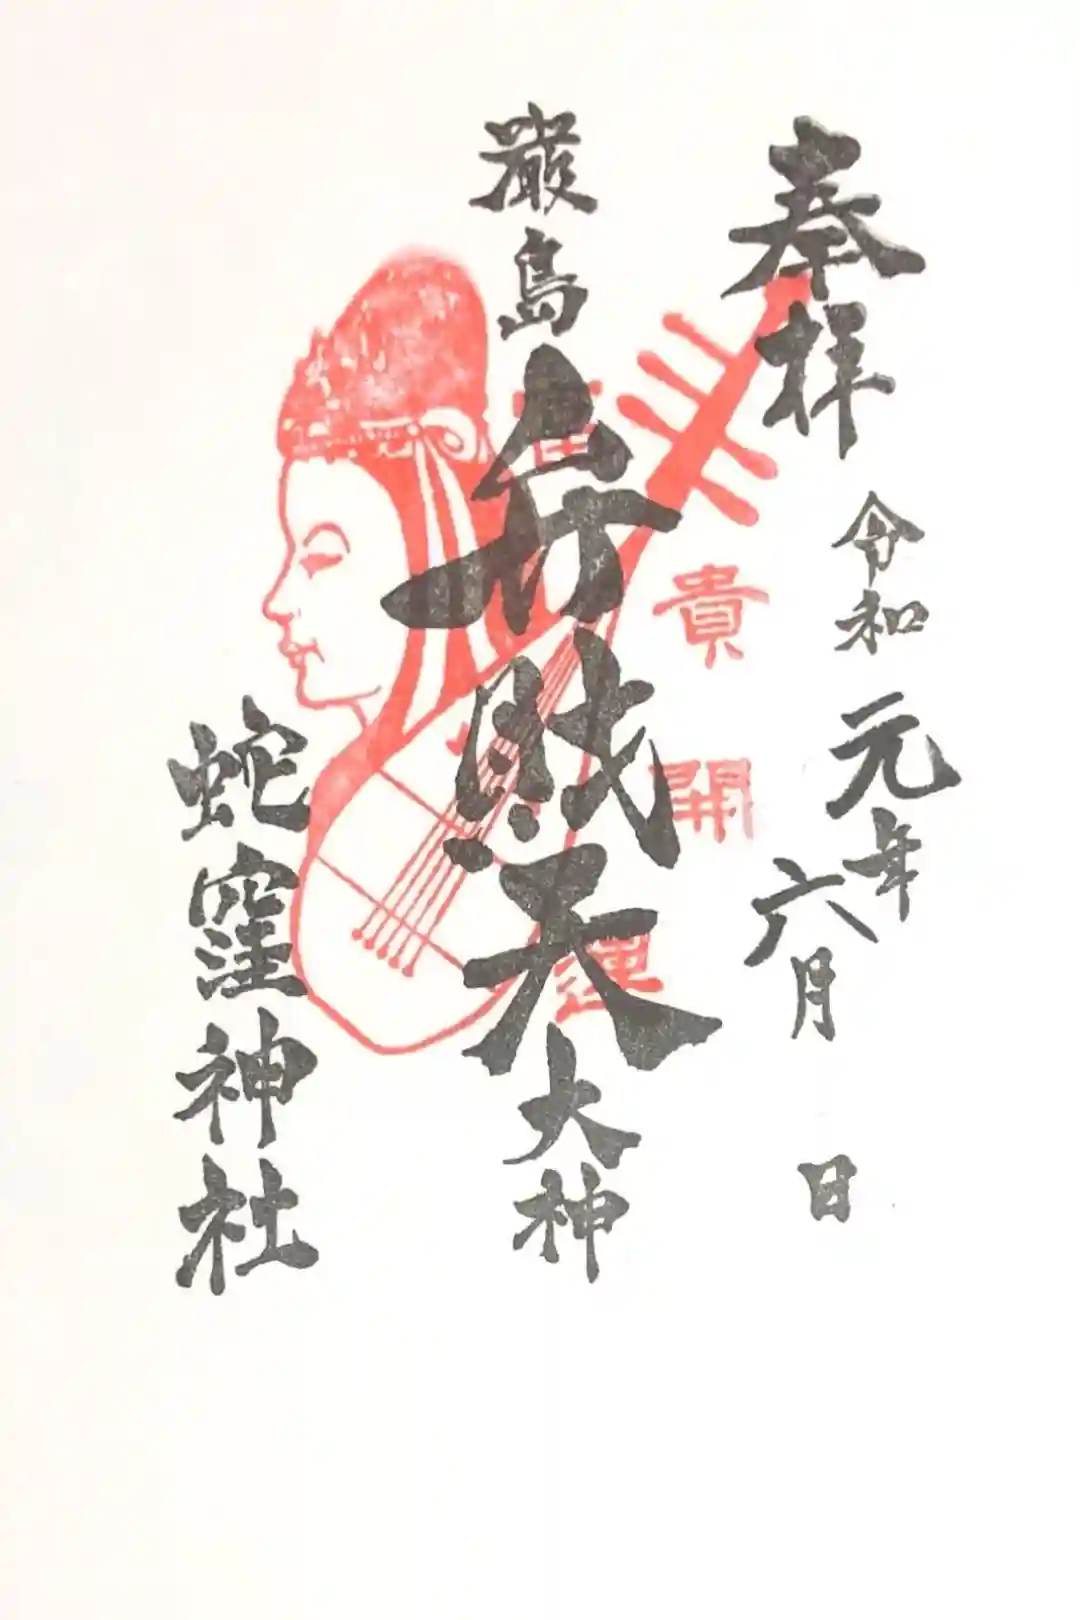 奉拝
令和元年六月 日
厳島弁財天大神
富貴開運
蛇窪神社